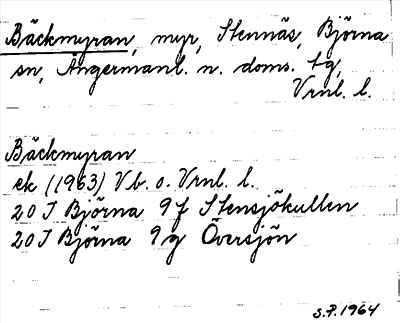 Bäckmyran, myr, Stennäs, Björna
sn, Ångermanl. n. doms. tg,
Vrnl. l.
Bäckmyran
ek (1963) Vb. o. Vrnl. l.
20 J Björna 9 f Stensjökullen
20 J Björna 9 g Översjön
S.P. 1964